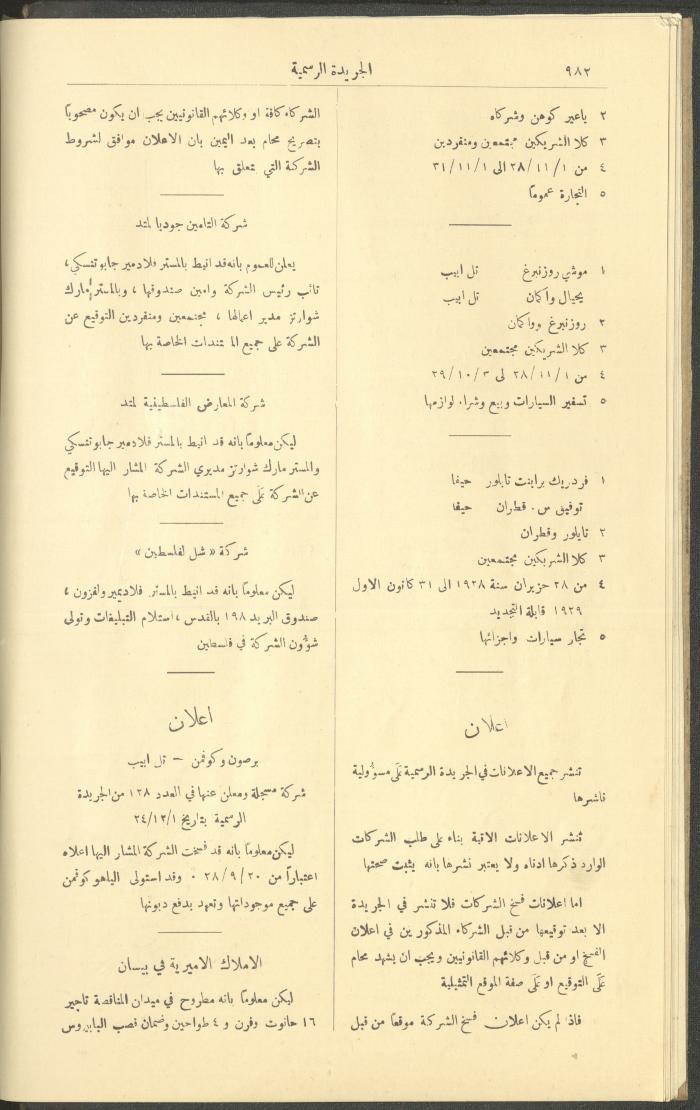 ٩٨٢
الجريدة الرسمية
٢ ياعير كوهن وشركاه
٣ كلا الشريكين مجتمعين ومنفردين
٤ من ٢٨/١١/١ الى ٣١/١١/١
٥ التجارة عموماً
١ موشي روزنبرغ تل ابيب
يحيال واكمان تل ابيب
٢ روزنبرغ وواكمان
٣ كلا الشريكين مجتمعين
٤ من ٢٨/١١/١ لى ٢٩/١٠/٣
٥ تسفير السيارات وبيع وشراء لوازمها
١ فردريك براينت تايلور حيفا
توفيق س. قطران حيفا
٢ تايلور وقطران
٣ كلا الشريكين مجتمعين
٤ من ٢٨ حزيران سنة ١٩٢٨ الى ٣١ كانون الاول
١٩٢٩ قابلة التجديد
٥ تجار سيارات واجزائها
اعلان
تنشر جميع الاعلانات في الجريدة الرسمية عَلَى مسؤولية
ناشرها
تنشر الاعلانات الاتية بناء على طلب الشركات
الوارد ذكرها ادناه ولا يعتبر نشرها بانه يثبت صحتها
اما اعلانات فسخ الشركات فلا تنشر في الجريدة
الا بعد توقيعها من قبل الشركاء المذكورين في اعلان
الفسخ او من قبل وكلائهم القانونيين ويجب ان يشهد محام
عَلَى التوقيع او عَلَى صفة الموقع التمثيلية
فاذا لم يكن اعلان فسخ الشركة موقعاً من قبل
الشركاء كافة او وكلائهم القانونيين يجب ان يكون مصحوباً
بتصريح محام بعد اليمين بان الاعلان موافق لشروط
الشركة التي يتعلق بها
شركة التامين جوديا لمتد
يعلن للعموم بانه قد انيط بالمستر فلادمير جابوتنسكي،
نائب رئيس الشركة وامين صندوقها، وبالمستر مارك
شوارتز مدير اعمالها، مجتمعين ومنفردين التوقيع عن
الشركة على جميع الم تندات الخاصة بها
شركة المعارض الفلسطينية لمتد
ليكن معلوماً بانه قد انيط بالمستر فلادمير جابوتنسكي
والمستر مارك شوارتز مديري الشركة المشار اليها التوقيع
عن الشركة عَلَى جميع المستندات الخاصة بها
شركة «شل لفلسطين»
ليكن معلوماً بانه قد انيط بالمستر فلاديمير ولفزون،
صندوق البريد ١٩٨ بالقدس، استلام التبليغات وتولى
شؤون الشركة في فلسطين
اعلان
برصون وكوفمن – تل ابيب
شركة مسجلة ومعلن عنها في العدد ١٢٨ من الجريدة
الرسمية بتاريخ ٢٤/١٢/١
ليكن معلوماً بانه قد فسخت الشركة المشار اليها اعلاه
اعتباراً من ٢٨/٩/٢٠ . وقد استولى الياهو كوفمن
على جميع موجوداتها وتعهد بدفع ديونها
الاملاك الاميرية في بيسان
ليكن معلوماً بانه مطروح في ميدان المناقصة تاجير
١٦ حانوت وفرن و ٤ طواحين وضمان قصب البابيروس